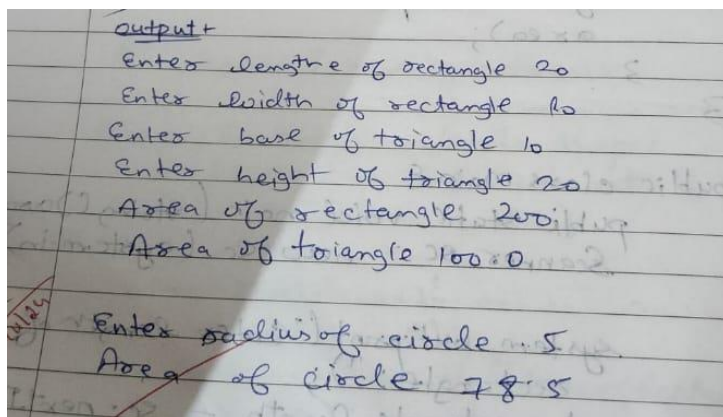 Output
Enter lengthe of rectangle 20
Enter width of rectangle 10
Enter base of triangle 10
Enter height of triangle 20
Area of rectangle 200
Area of triangle 100.0
Enter radius of circle 5
Area of circle 78.5